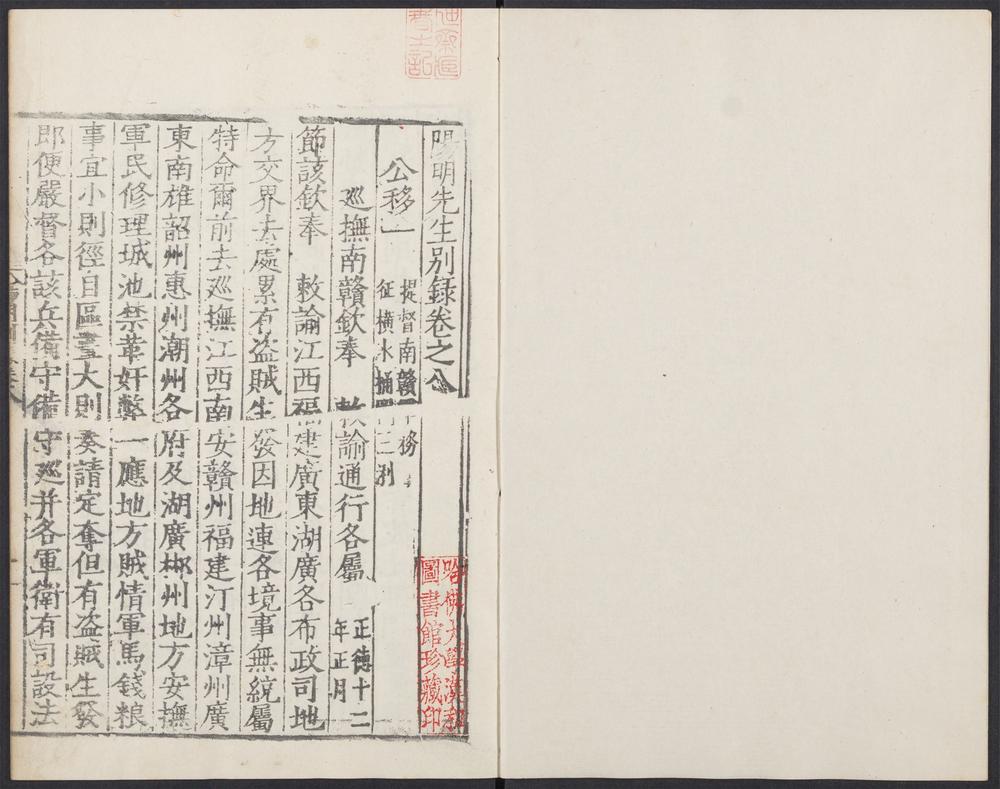 陽明先生別錄卷之八
公移一 提督南贛軍務
征橫水桶岡三浰
巡撫南贛欽奉 敕諭通行各屬 正德十二
年正月
節該欽奉 敕諭江西福建廣東湖廣各布政司地
方交界去處累有盜賊生發因地連各境事無統屬
特命爾前去巡撫江西南安贛州福建汀州漳州廣
東南雄韶州惠州潮州各府及湖廣郴州地方安撫
軍民修理城池禁革奸弊一應地方賊情軍馬錢粮
事宜小則徑自區畫大則奏請定奪但有盜賊生發
即便嚴督各該兵備守備守巡并各軍衛有司設法
哈佛大學漢和
圖書館珍藏印